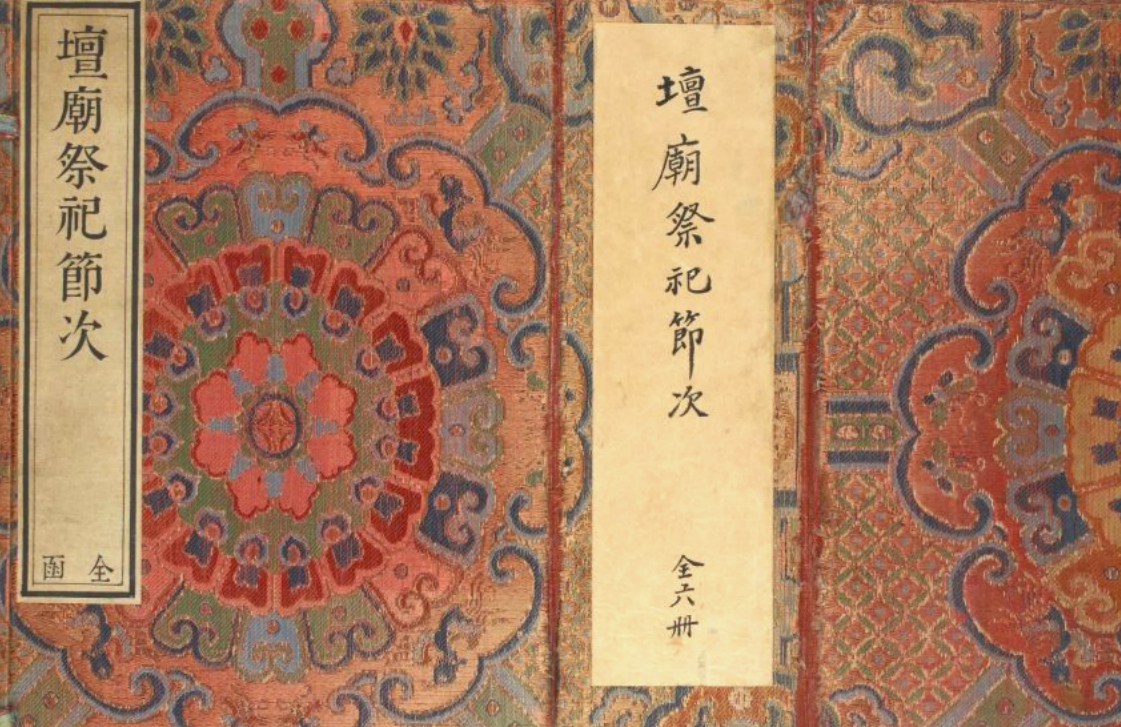 壇廟祭祀節次
全函
壇廟祭祀節次
全六册